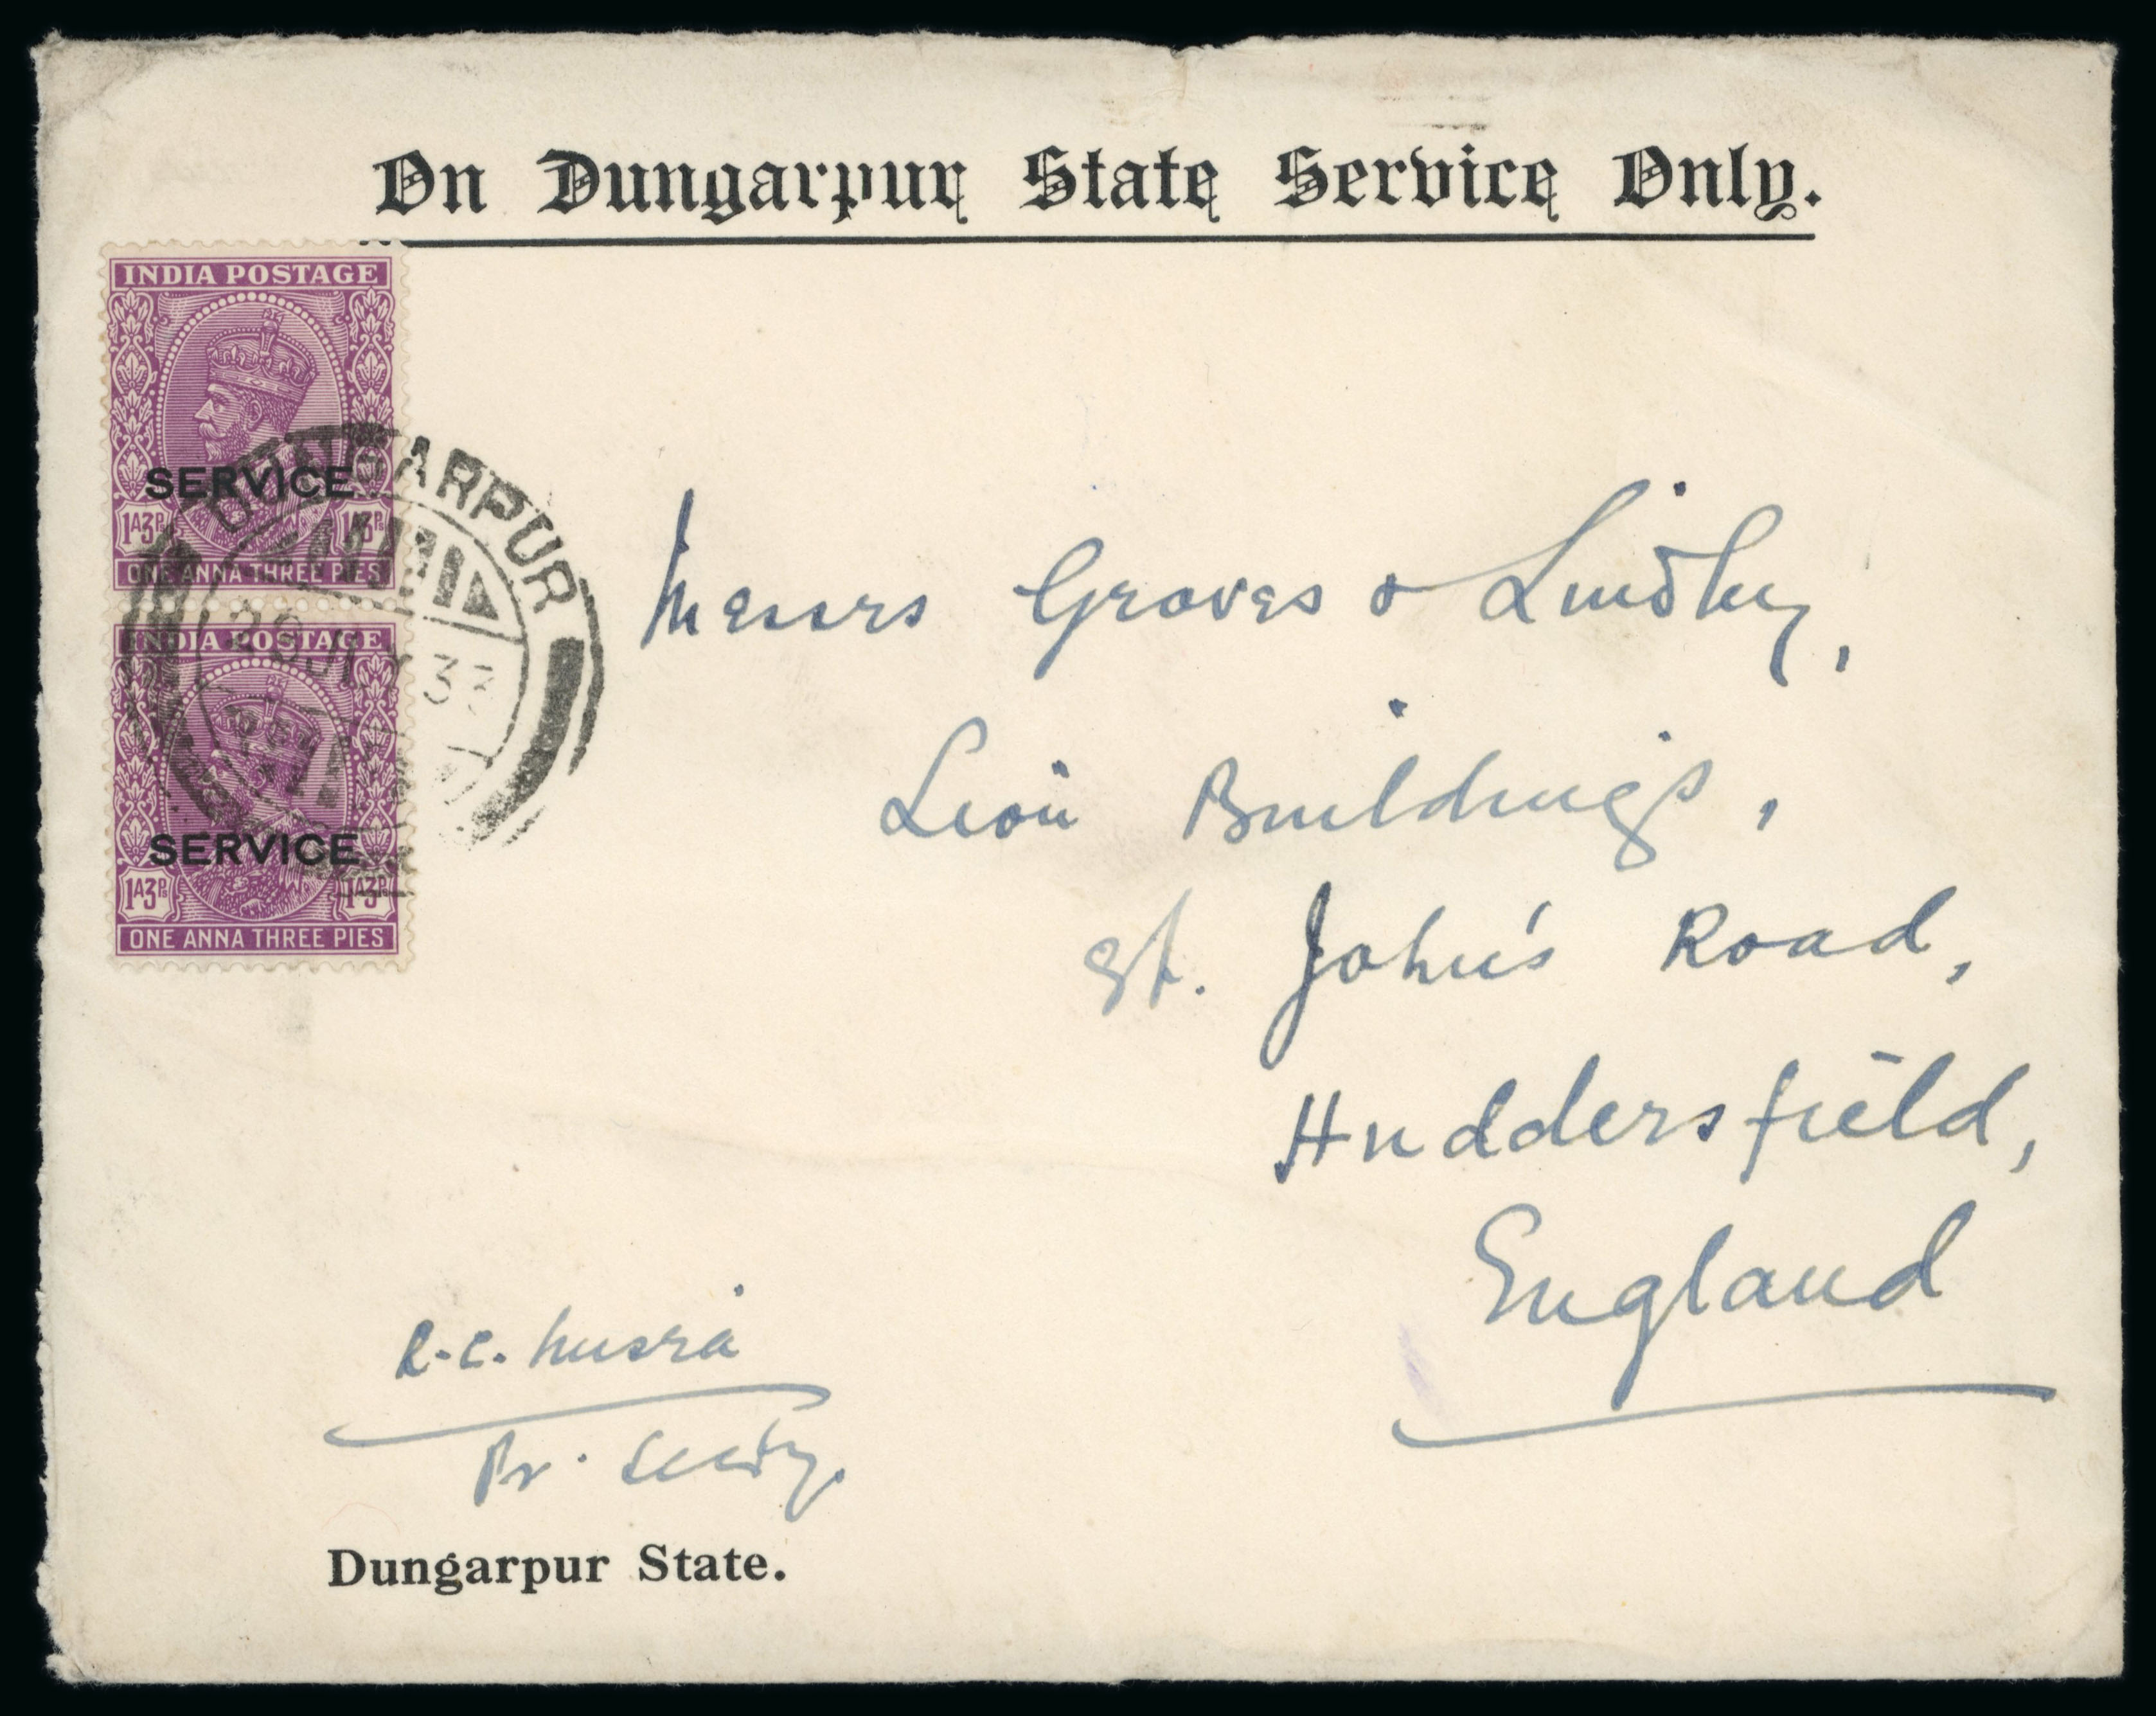 On Dungarpur State Service Only.
INDIA POSTAGE
SERVICE
1A3Ps 1A3Ps
ONE ANNA THREE PIES
DUNGARPUR
33
INDIA POSTAGE
SERVICE
1A3Ps 1A3Ps
ONE ANNA THREE PIES
Messrs Groves & Lindley,
Lion Buildings,
St. John's Road,
Huddersfield,
England
R.C. Misra
Pr. Secty.
Dungarpur State.